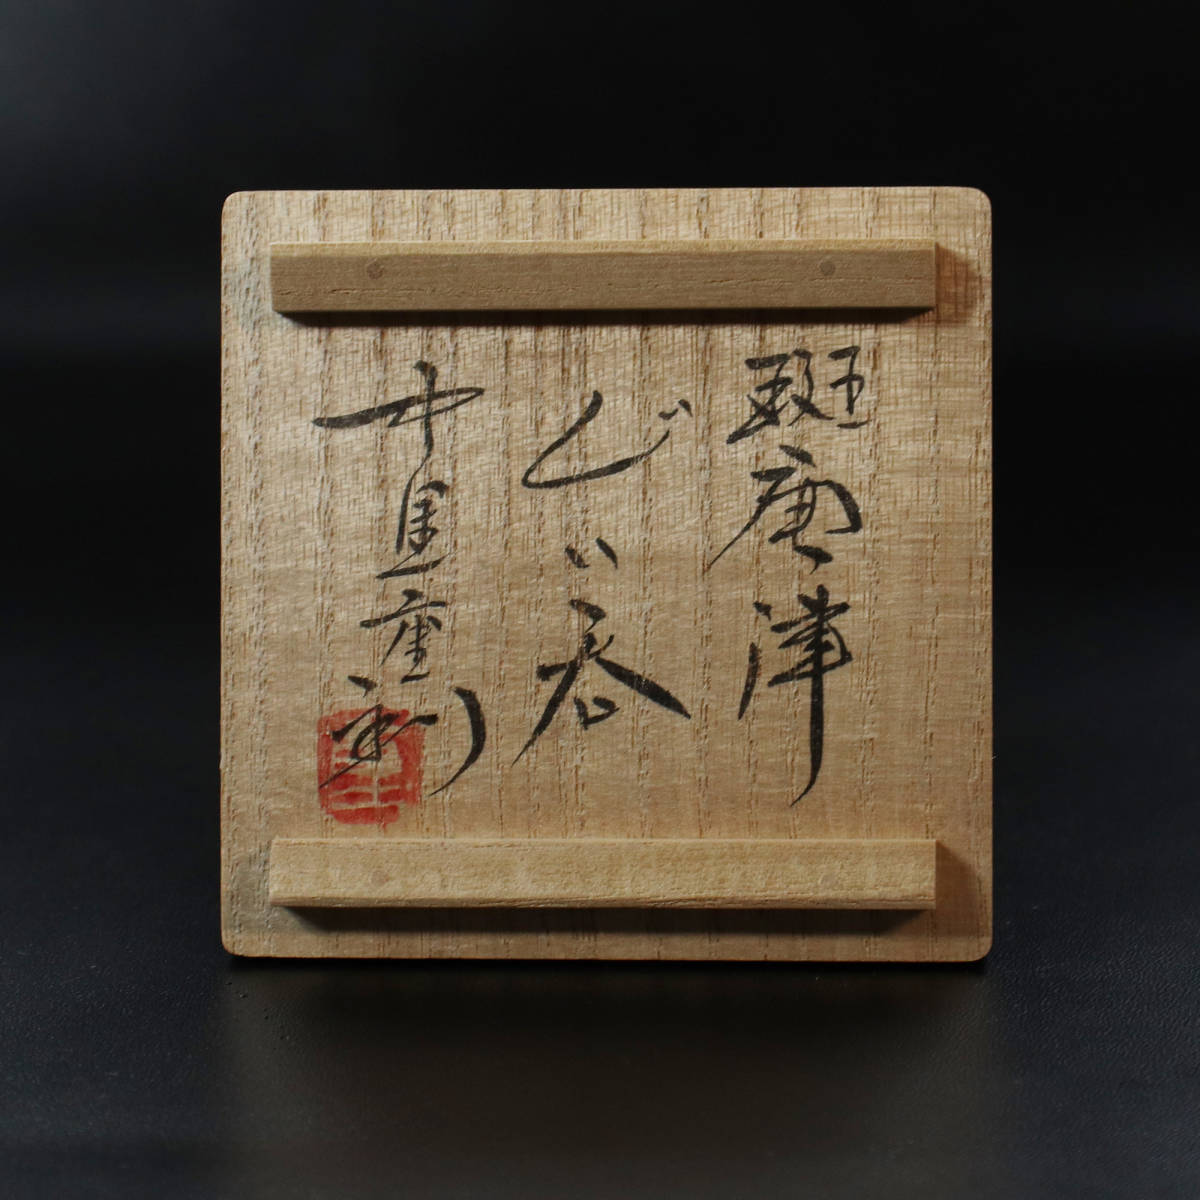 斑唐津
ぐい呑
中里重利